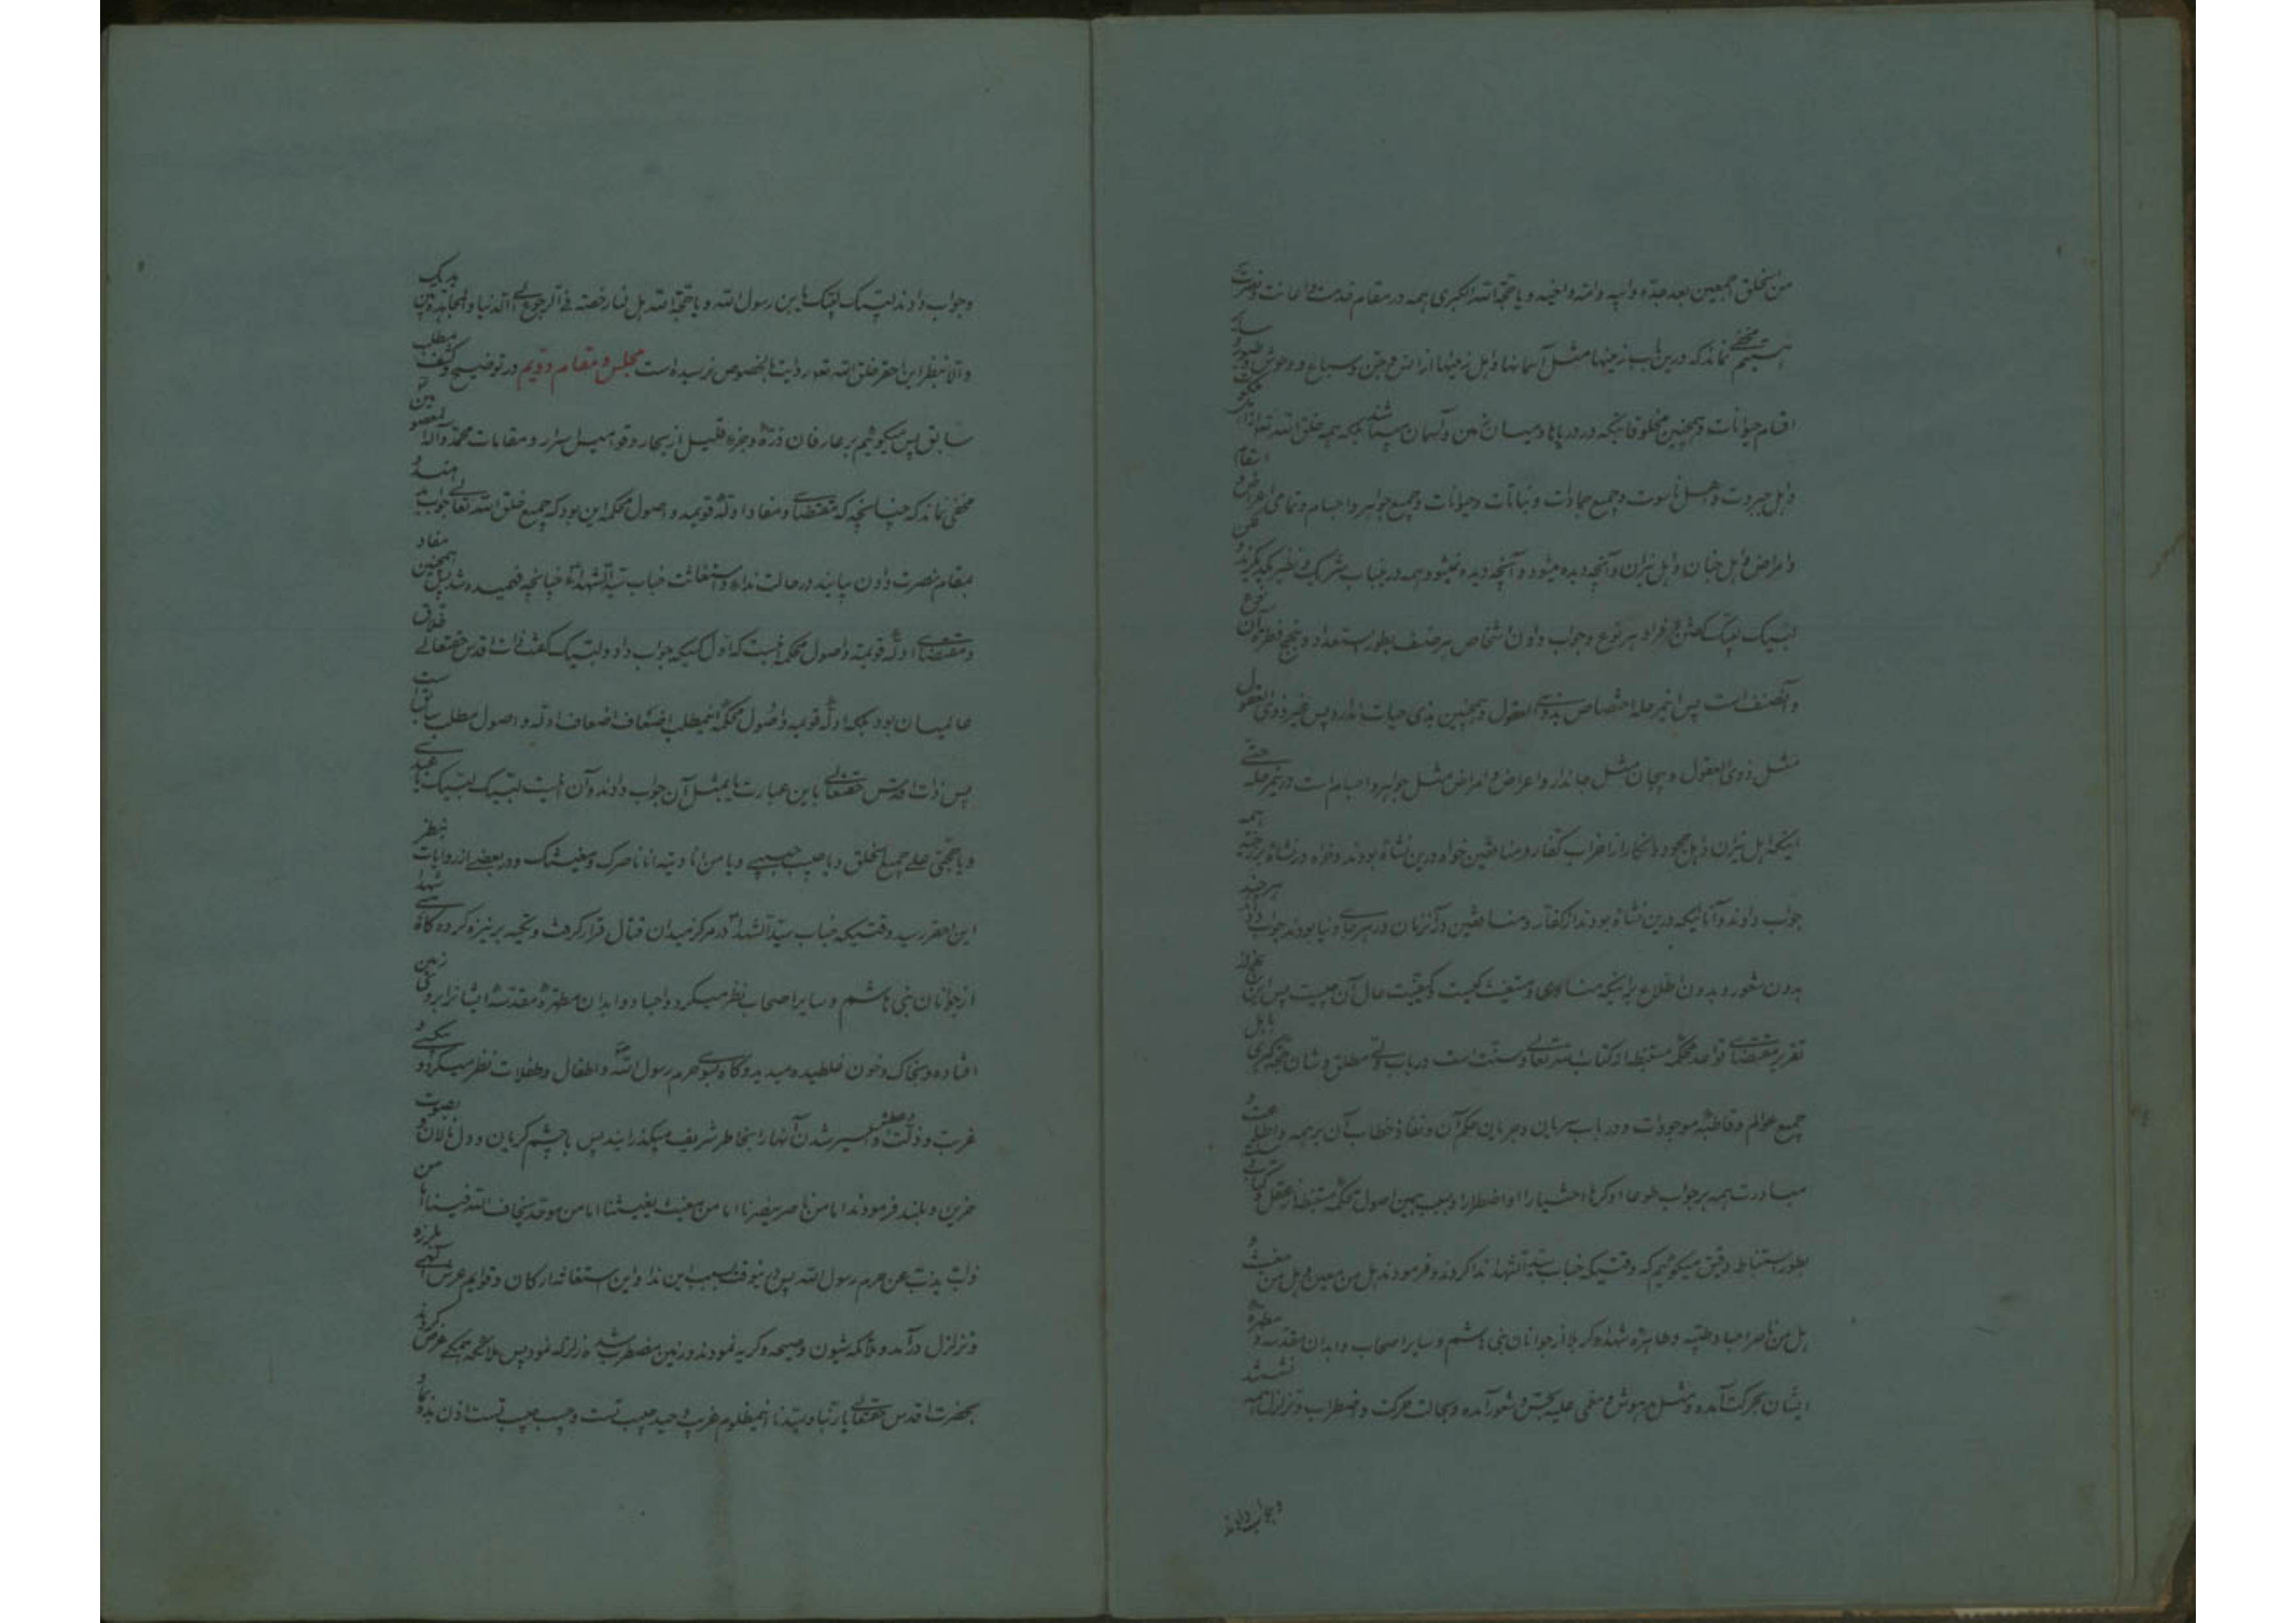 من الخلق اجمعین بعد جده و ابیه و امه و اخیه و یا حجة الله الکبری همه در مقام خدمت و اعانت و نصرت
هستیم مخفی نماند که درین باب زمینها مثل آسمانها و اهل زمینها از انس و جن و سباع و وحوش و طیور و سایر
اقسام حیوانات و همچنین مخلوقاتیکه در دریاها و میان زمین و آسمان میباشند بلکه همه خلق الله تعالی از
و اهل جبروت و اهل ناسوت و جمیع جمادات و نباتات و حیوانات و جمیع جواهر و اجسام و تمامی اعراض و
و امراض و اهل جنان و اهل نیران و آنچه دیده میشود و آنچه دیده نمیشود همه درینباب شریک و نظیر یکدیگرند و
لبیک لبیک گفتن افراد هر نوع و جواب دادن اشخاص هر صنف بطور استعداد و نهج فطرة آن نوع
و آنصنف است پس اینمرحله اختصاص بذوی العقول و همچنین بذی حیات ندارد پس غیر ذوی العقول
مثل ذوی العقول و بیجان مثل جاندار و اعراض و امراض مثل جواهر و اجسام است درینمرحله حتی
اینکه اهل نیران و اهل جحود و انکار از احزاب کفار و منافقین خواه درین نشأة بودند و خواه در نشأة برزخیه همه
جواب دادند و آنانیکه درین نشأة بودند از کفار و منافقین در آنزمان در هر جای دنیا بودند جواب دادند هر چند
بدون شعور و بدون اطلاع بر اینکه منادی و مستغیث کیست و کیفیت حال آن چیست پس این
تقریر مقتضای قواعد محکمه مستنبطه از کتاب الله تعالی و سنت است در باب ولی مطلق و شان حجة کبری
جمیع عوالم و قاطبه موجودات و در باب سریان و جریان حکم آن و نفاذ خطاب آن بر همه و اطاعت و
مبادرت همه بر جواب طوعا او کرها اختیارا او اضطرارا و بسبب همین اصول محکمه مستنبطه از عقل و کتاب و
بطور استنباط دقیق میگوئیم که وقتیکه جناب سید الشهدا ندا کردند و فرمودند هل من معین و هل من مغیث و
هل من ناصر اجساد طیبه و طاهره شهداء کربلا از جوانان بنی هاشم و سایر اصحاب و ابدان مقدسه و مطهره
ایشان بحرکت آمده و مثل مدهوش و مغمی علیه بحس و شعور آمده و بحالت حرکت و اضطراب و تزلزل همه نشستند
و جواب دادند
و جواب دادند لبیک لبیک یابن رسول الله و یا حجة الله هل لنا رخصة فی الرجوع الی الدنیا و المجاهدة بین یدیک
و الا بنظر این احقر خلق الله تعالی روایت بالخصوص نرسیده است مجلس و مقام دویم در توضیح و کشف مطلب
سابق پس میگوئیم بر عارفان ذره و جزء قلیل از بحار و قوامیس اسرار و مقامات محمد و آله
مخفی نماند که چنانچه که مقتضای و مفاد ادله قویمه و اصول محکمه این بود که جمیع خلق الله تعالی جواب دهند و
بمقام نصرت دادن بیایند در حالت نداء و استغاثت جناب سید الشهداء چنانچه فهمیده شد پس همچنین مفاد
و مقتضای ادله قویمه و اصول محکمه اینست که اول کسیکه جواب داد و لبیک گفت ذات اقدس حقتعالی خلاق
عالمیان بود بلکه ادله قویمه و اصول محکمه اینمطلب اضعاف اضعاف ادله و اصول مطلب سابق است
پس ذات اقدس حقتعالی باین عبارت یا بمثل آن جواب دادند و آن اینست لبیک لبیک یا عبدی
و یا حجتی علی جمیع الخلق و یا حبیب حبیبی و یا من انا سیده انا ناصرک و مغیثک و در بعضی از روایات بنظر
این احقر رسید وقتیکه جناب سید الشهدا در مرکز میدان قتال قرار گرفت و تکیه بر نیزه کرد و گاهی
از جوانان بنی هاشم و سایر اصحاب نظر میکرد و اجساد و ابدان مطهره مقدسه ایشانرا بر روی زمین
افتاده و بخاک و خون غلطیده میدید و گاه بسوی حرم رسول الله و اطفال و طفلات نظر میکرد و
غربت و ذلت و اسیر شدن آنها را بخاطر شریف میگذرانید پس با چشم گریان و دل نالان و بصوت
حزین و بلند فرمودند اما من ناصر ینصرنا اما من مغیث یغیثنا اما من موحد یخاف الله فینا اما من
ذاب یذب عن حرم رسول الله پس درینوقت بسبب این ندا و این استغاثه ارکان و قوایم عرش الهی بلرزه
و تزلزل درآمد و ملائکه شیون و صیحه و گریه نمودند و زمین مضطرب شد زلزله نمود پس ملائکه همگی عرض کردند
بحضرت اقدس حقتعالی یا ربنا و سیدنا اینمظلوم غریب وحید حبیب تست و حبیب حبیب تست اذن بده